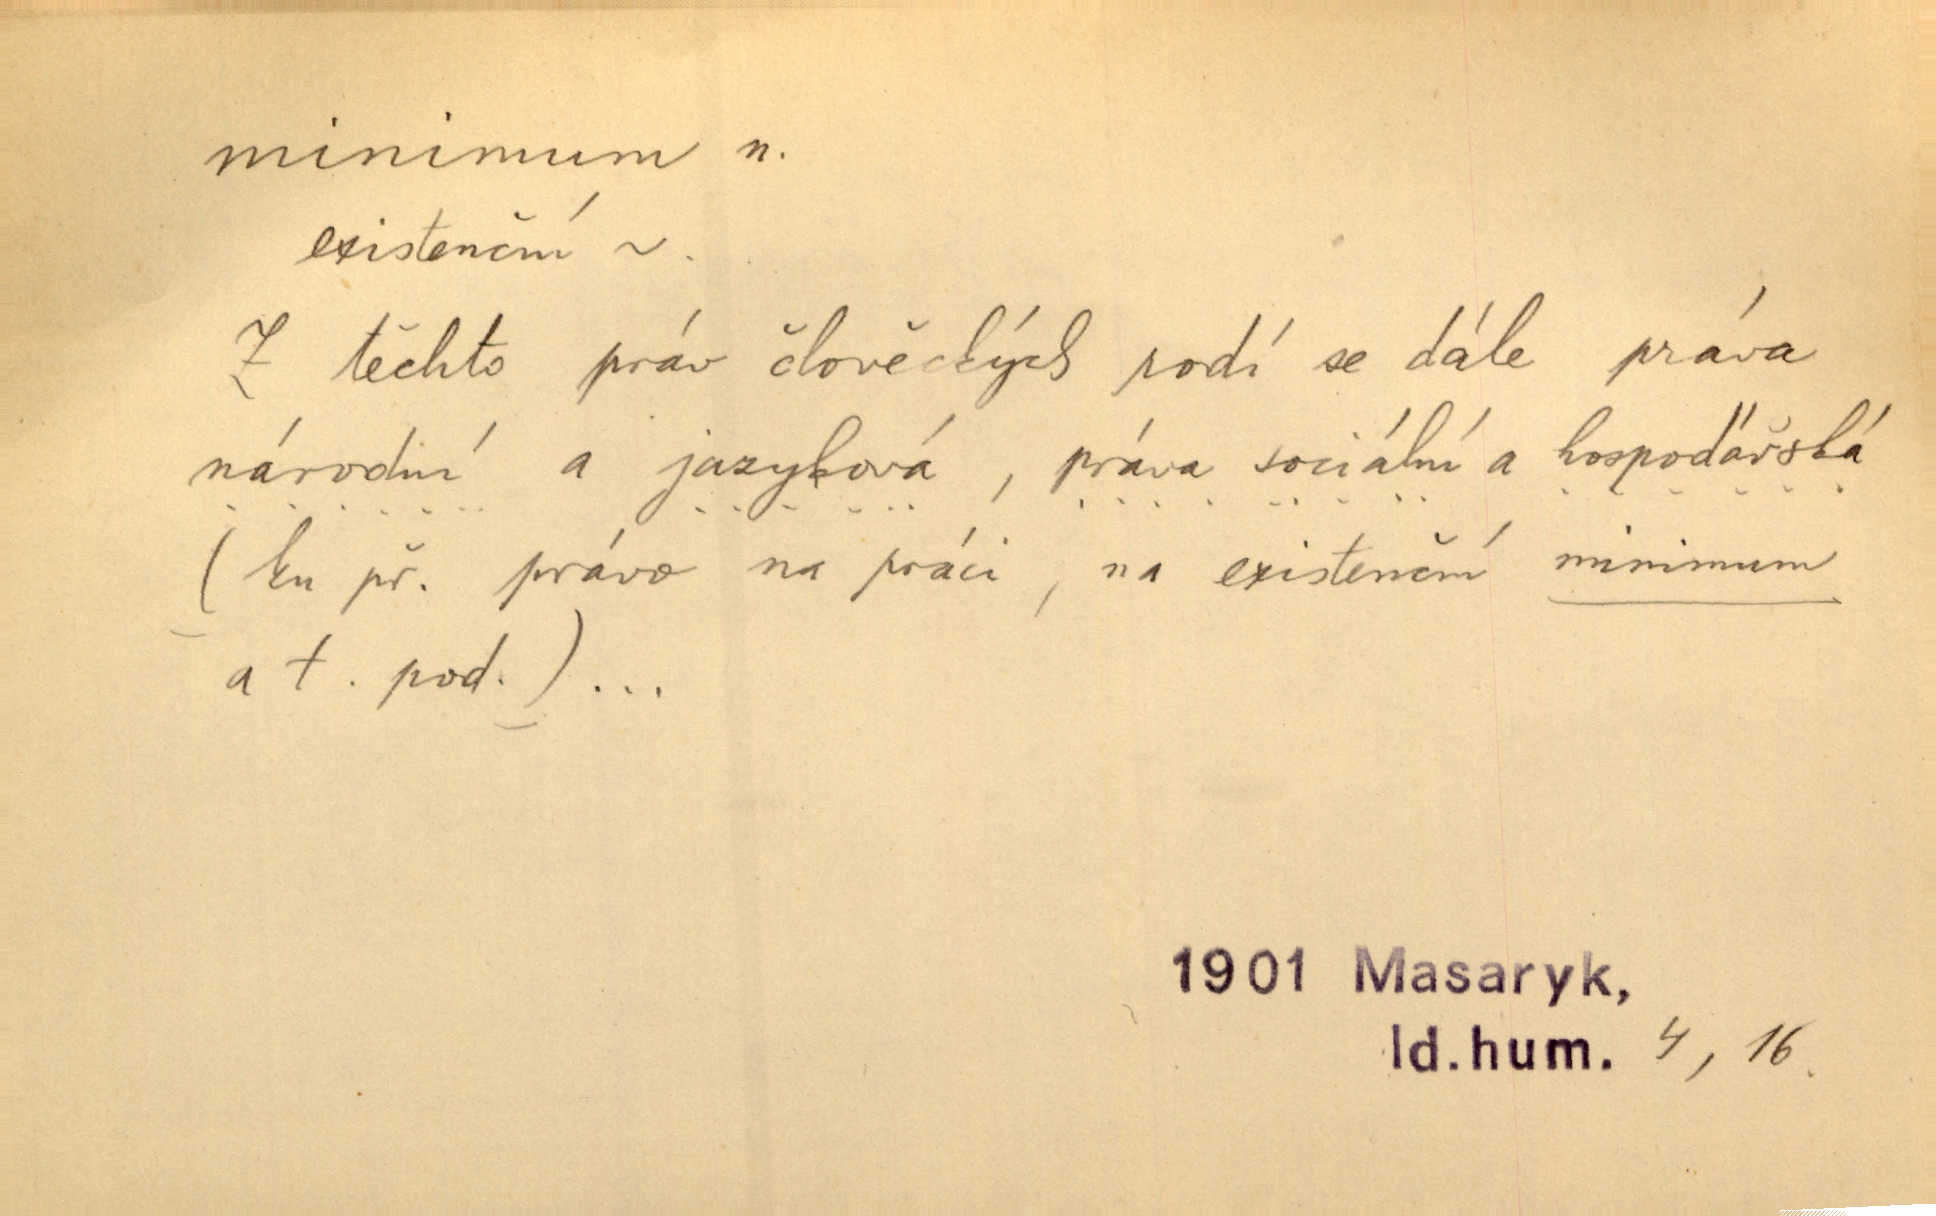 minimum n.
existenční ~.
Z těchto práv člověckých rodí se dále práva
národní a jazyková, práva sociální a hospodářská
(ku př. právo na práci, na existenční minimum
a t. pod.)...
1901 Masaryk,
Id.hum. 4, 16.